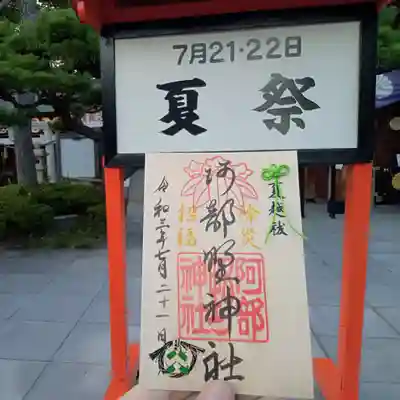 7月21・22日
夏祭
夏越祓
阿部野神社
令和三年七月二十一日
阿部野神社